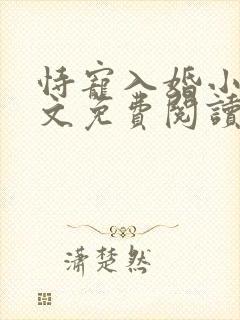 恃寵入婚小
文免費閱讀
瀟楚然